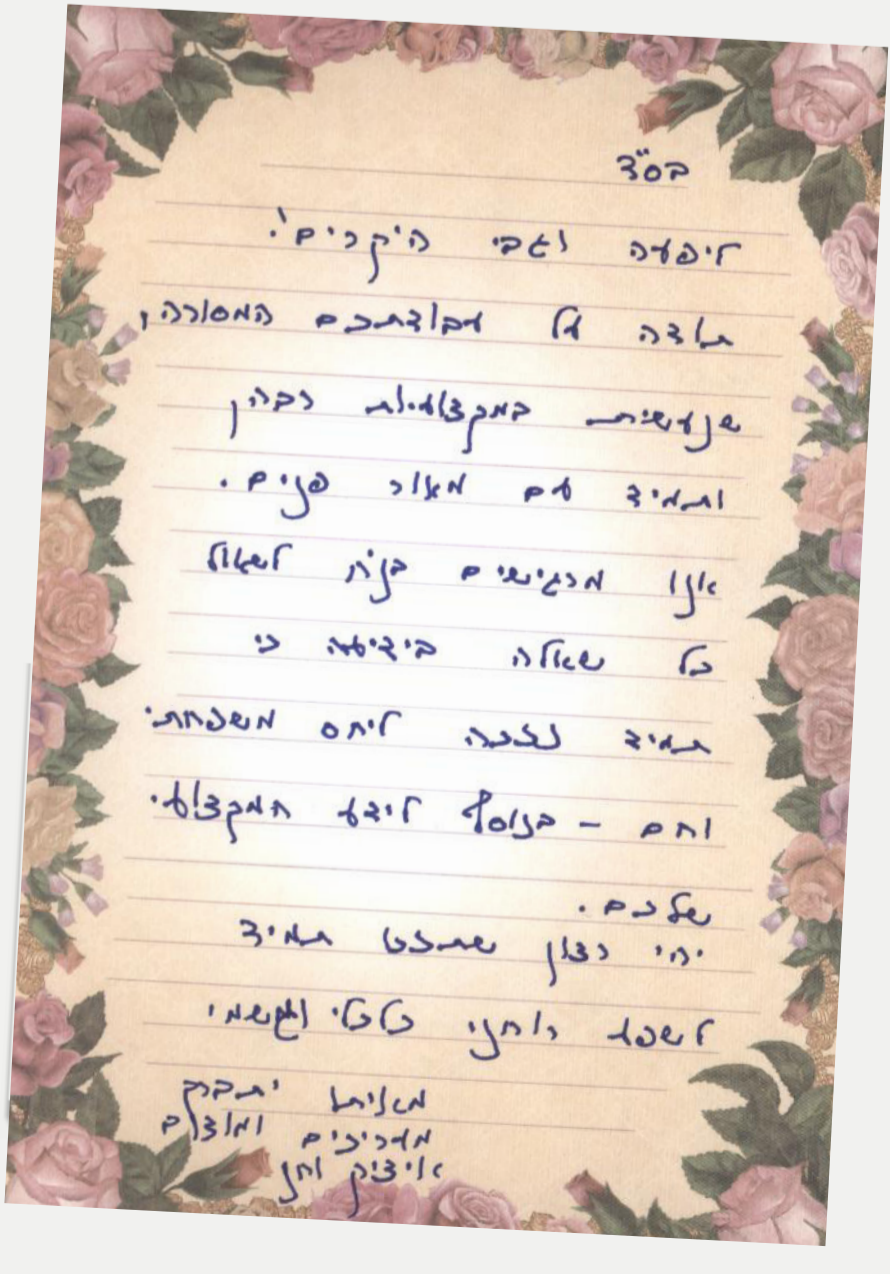 בס"ד
ליפעה וגבי היקרים!
תודה על עבודתכם המסורה,
שנעשית במקצועיות רבה,
ותמיד עם מאור פנים.
אנו מרגישים בנח לשאול
כל שאלה בידיעה כי
תמיד נזכה ליחס משפחתי
וחם - בנוסף לידע המקצועי
שלכם.
יהי רצון שתזכו תמיד
לשפע רוחני כלכלי וגשמי
מאיתו יתברך
מעריכים ומודים
איציק וחן